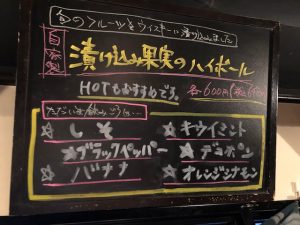 旬のフルーツをウイスキーに漬け込みました
自家製
漬け込み果実のハイボール
HOTもおすすめです。
各600円(税込660)
ただいま飲み頃は…
☆しそ
☆キウイミント
☆ブラックペッパー
☆デコポン
☆バナナ
☆オレンジシナモン